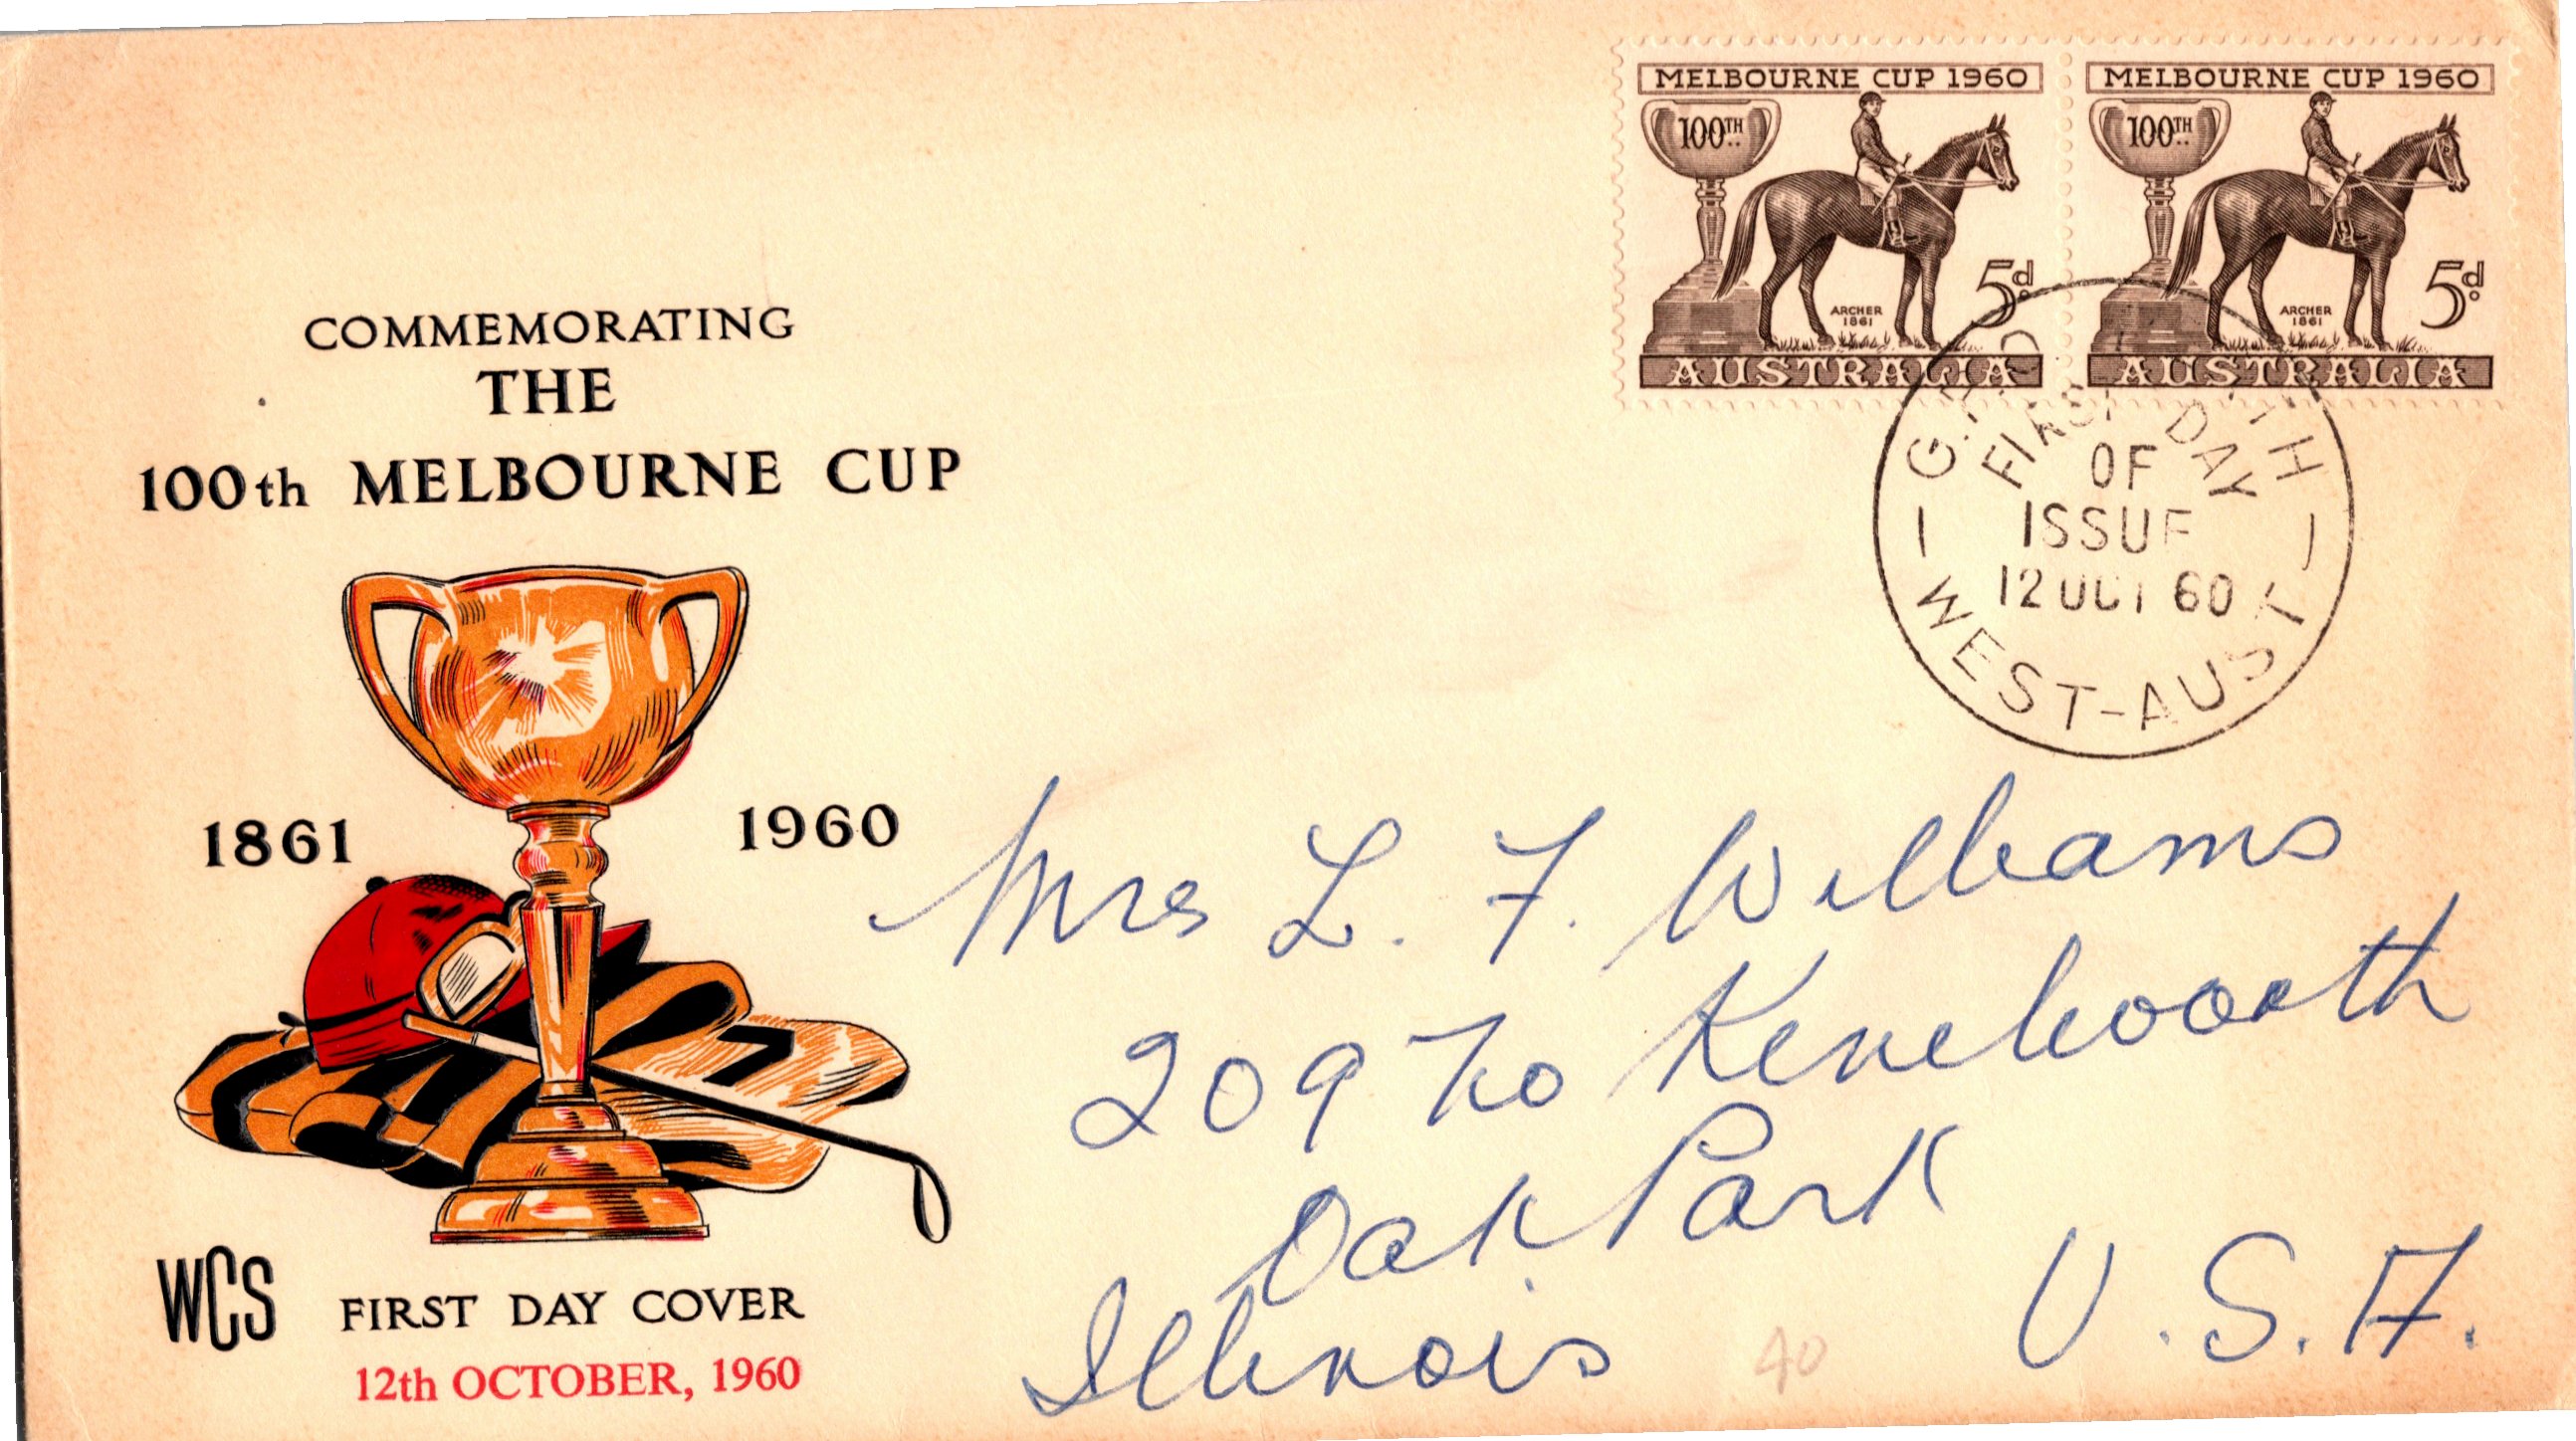 COMMEMORATING
THE
100th MELBOURNE CUP
1861 1960
WCS FIRST DAY COVER
12th OCTOBER, 1960
MELBOURNE CUP 1960
100TH
ARCHER
1861
5d
AUSTRALIA
MELBOURNE CUP 1960
100TH
ARCHER
1861
5d
AUSTRALIA
FIRST DAY
OF
ISSUE
12 OCT 60
WEST-AUST
Mrs L. F. Williams
209 No Kenelworth
Oak Park
Illinois U.S.A.
40